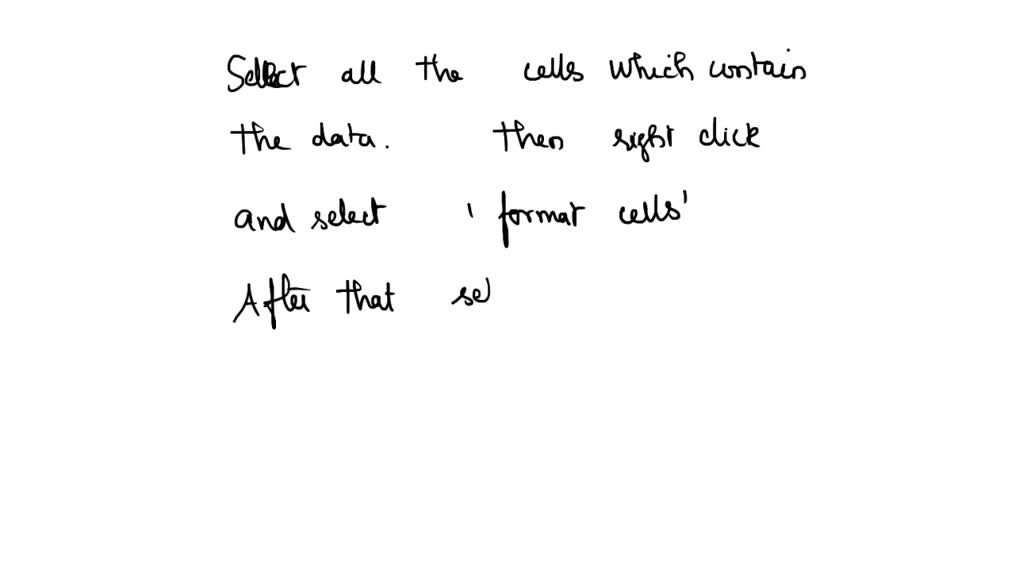 Select all the cells which contain
the data. then right click
and select 'format cells'
After that sel